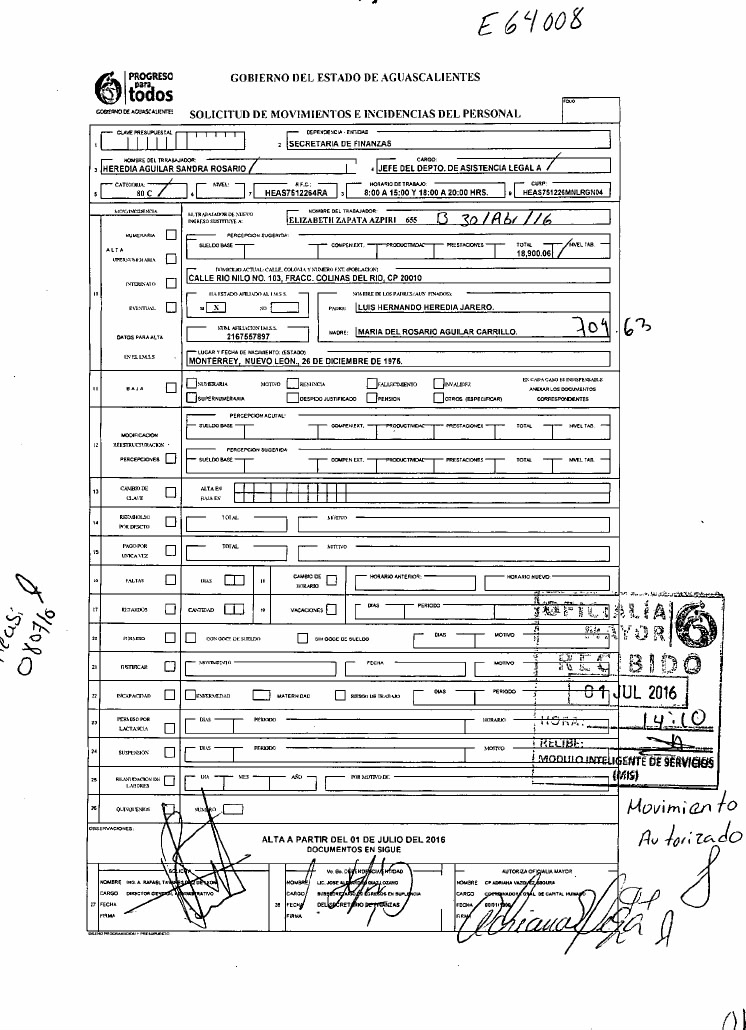 E64008
PROGRESO
para
todos
GOBIERNO DE AGUASCALIENTES
GOBIERNO DEL ESTADO DE AGUASCALIENTES
SOLICITUD DE MOVIMIENTOS E INCIDENCIAS DEL PERSONAL
FOLIO
CLAVE PRESUPUESTAL
DEPENDENCIA - ENTIDAD
1
2 SECRETARIA DE FINANZAS
NOMBRE DEL TRABAJADOR: CARGO:
3 HEREDIA AGUILAR SANDRA ROSARIO 4 JEFE DEL DEPTO. DE ASISTENCIA LEGAL A
CATEGORIA: NIVEL: R.F.C.: HORARIO DE TRABAJO: CURP:
5 80 C 6 7 HEAS7512264RA 8:00 A 15:00 Y 18:00 A 20:00 HRS. HEAS751226MNLRGN04
MOV./INCIDENCIA
EL TRABAJADOR DE NUEVO INGRESO SUSTITUYE A:
NOMBRE DEL TRABAJADOR:
ELIZABETH ZAPATA AZPIRI 655 B 30/Abr/16
ALTA
NUMERARIA
PERCEPCION SUGERIDA:
SUELDO BASE COMPEN EXT. PRODUCTIVIDAD PRESTACIONES TOTAL NIVEL TAB.
18,900.06
INTERINATO
DOMICILIO ACTUAL: CALLE, COLONIA Y NUMERO EXT. (POBLACION)
CALLE RIO NILO NO. 103, FRACC. COLINAS DEL RIO, CP 20010
10
EVENTUAL
HA ESTADO AFILIADO AL I.M.S.S.
SI X NO
NOMBRE DE LOS PADRES (AUN FINADOS):
PADRE: LUIS HERNANDO HEREDIA JARERO.
DATOS PARA ALTA
EN EL I.M.S.S
NUM. AFILIACION I.M.S.S.
2167557897
MADRE: MARIA DEL ROSARIO AGUILAR CARRILLO.
704.63
LUGAR Y FECHA DE NACIMIENTO: (ESTADO)
MONTERREY, NUEVO LEON., 26 DE DICIEMBRE DE 1975.
11 BAJA NUMERARIA MOTIVO RENUNCIA FALLECIMIENTO INVALIDEZ
SUPERNUMERARIA DESPIDO JUSTIFICADO PENSION OTROS (ESPECIFICAR)
EN CADA CASO ES INDISPENSABLE
ANEXAR LOS DOCUMENTOS
CORRESPONDIENTES
12
MODIFICACION
REESTRUCTURACION
PERCEPCIONES
PERCEPCION ACUTAL:
SUELDO BASE COMPEN EXT. PRODUCTIVIDAD PRESTACIONES TOTAL NIVEL TAB.
PERCEPCION SUGERIDA
SUELDO BASE COMPEN EXT. PRODUCTIVIDAD PRESTACIONES TOTAL NIVEL TAB.
13 CAMBIO DE CLAVE ALTA EN
BAJA EN
14 REEMBOLSO POR DESCTO TOTAL MOTIVO
15 PAGO POR UNICA VEZ TOTAL MOTIVO
16 FALTAS DIAS 18 CAMBIO DE HORARIO HORARIO ANTERIOR: HORARIO NUEVO:
17 RETARDOS CANTIDAD 19 VACACIONES DIAS PERIODO
20 PERMISO CON GOCE DE SUELDO SIN GOCE DE SUELDO DIAS MOTIVO
21 JUSTIFICAR MOVIMIENTO FECHA MOTIVO
22 INCAPACIDAD ENFERMEDAD MATERNIDAD RIESGO DE TRABAJO DIAS PERIODO
23 PERMISO POR LACTANCIA DIAS PERIODO HORARIO
24 SUSPENSION DIAS PERIODO MOTIVO
25 REANUDACION DE LABORES DIA MES AÑO POR MOTIVO DE:
26 QUINQUENIOS NUMERO
OFICIALIA
MAYOR
RECIBIDO
01 JUL 2016
HORA: 14:10
RECIBE:
MODULO INTELIGENTE DE SERVICIOS
(MIS)
080716
Movimiento
Autorizado
OBSERVACIONES:
ALTA A PARTIR DEL 01 DE JULIO DEL 2016
DOCUMENTOS EN SIGUE
SOLICITA
NOMBRE ING. A. RAFAEL
CARGO DIRECTOR GENERAL ADMINISTRATIVO
27 FECHA
FIRMA
Vo. Bo. DEPENDENCIA/ENTIDAD
NOMBRE LIC. JOSE
CARGO SUBSECRETARIO DE EGRESOS EN SUPLENCIA
28 FECHA DEL SECRETARIO DE FINANZAS
FIRMA
AUTORIZA OFICIALIA MAYOR
NOMBRE CP ADRIANA
CARGO
FECHA
FIRMA